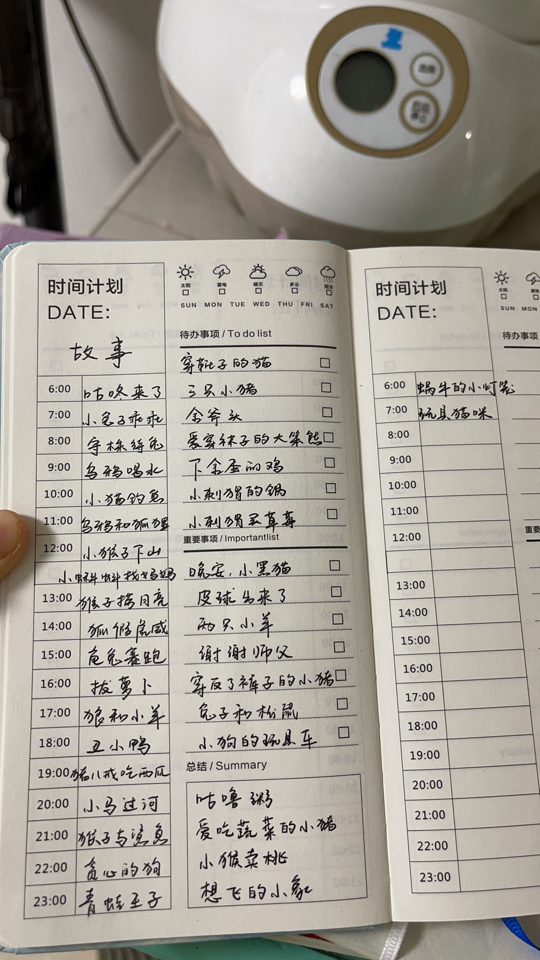 选择
启动
停止
时间计划
DATE:
故事
6:00 咕咚来了
7:00 小兔子乖乖
8:00 守株待兔
9:00 乌鸦喝水
10:00 小猫钓鱼
11:00 乌鸦和狐狸
12:00 小猴子下山
小蝌蚪找妈妈
13:00 猴子捞月亮
14:00 狐假虎威
15:00 龟兔赛跑
16:00 拔萝卜
17:00 狼和小羊
18:00 丑小鸭
19:00 猪八戒吃西瓜
20:00 小马过河
21:00 猴子与鲨鱼
22:00 贪心的狗
23:00 青蛙王子
太阳 雷电 晴天 多云 雨天
SUN MON TUE WED THU FRI SAT
待办事项 / To do list
穿靴子的猫
三只小猪
金斧头
爱穿袜子的大笨熊
下金蛋的鸡
小刺猬的锅
小刺猬采草莓
重要事项 / Importantlist
晚安，小黑猫
皮球出来了
两只小羊
谢谢师父
穿反了裤子的小猪
兔子和松鼠
小狗的玩具车
总结 / Summary
咕噜粥
爱吃蔬菜的小猪
小猴卖桃
想飞的小象
时间计划
DATE:
6:00 蜗牛的小灯笼
7:00 玩具猫咪
8:00
9:00
10:00
11:00
12:00
13:00
14:00
15:00
16:00
17:00
18:00
19:00
20:00
21:00
22:00
23:00
太阳
SUN MON
待办事项